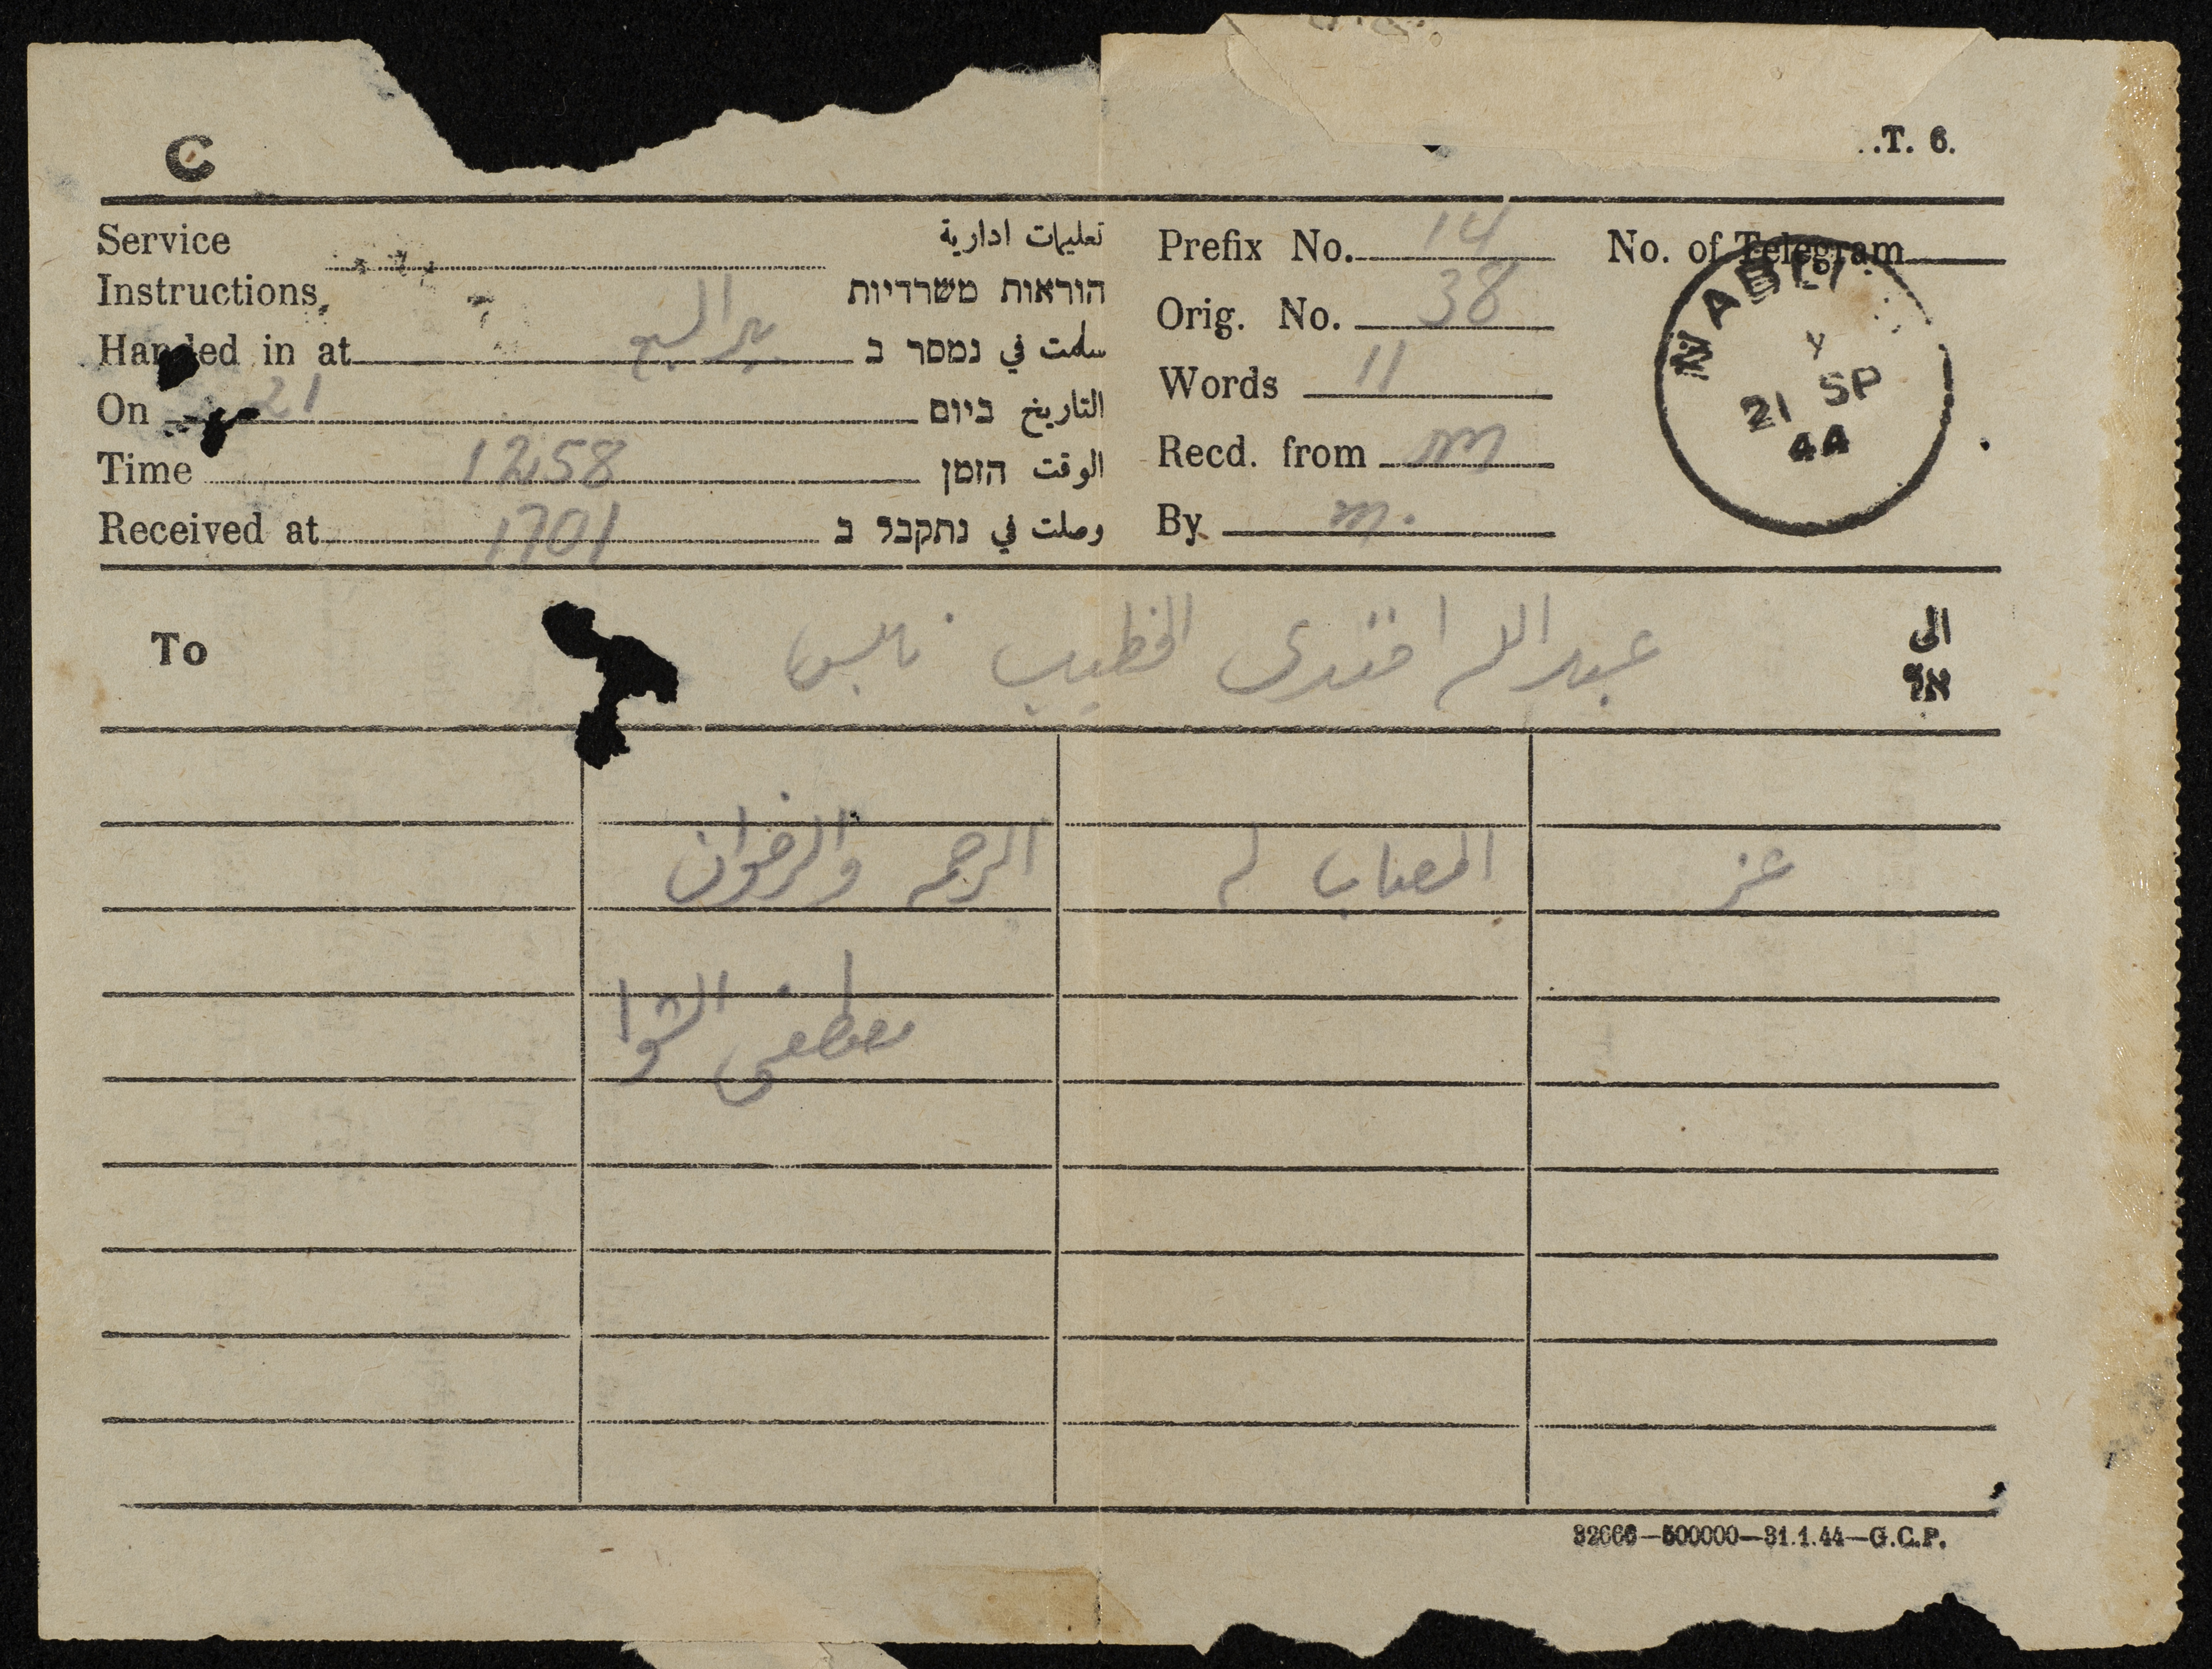 C
.T. 6.
Service تعليمات ادارية
Instructions הוראות משרדיות
Handed in at بير السبع سلمت في נמסר ב
On 21 التاريخ ביום
Time 1258 الوقت הזמן
Received at 1701 وصلت في נתקבל ב
Prefix No. 14
Orig. No. 38
Words 11
Recd. from m
By m.
No. of Telegram
NABLU
21 SP
44
To عبدالله افندى الخطيب نابلس الى
אל
عز المصاب له الرحمه والرضوان
مصطفى الشوا
32666—500000—31.1.44—G.C.P.